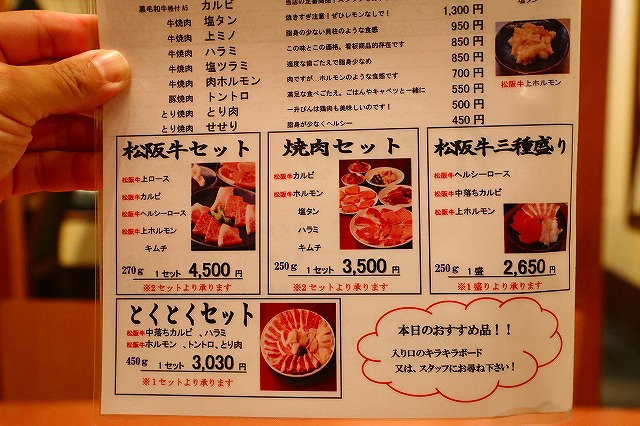 黒毛和牛格付A5 カルビ 1,300 円
牛焼肉 塩タン 焼きすぎ注意!ぜひレモンなしで! 1,100 円
牛焼肉 上ミノ 脂身の少ない貝柱のような食感 950 円
牛焼肉 ハラミ この味とこの価格。看板商品的存在です 850 円
牛焼肉 塩ツラミ 適度な歯ごたえで脂身少なめ 850 円
牛焼肉 肉ホルモン 肉ですが…ホルモンのような食感です 700 円
豚焼肉 トントロ 満足な食べごたえ。ごはんやキャベツと一緒に 550 円
とり焼肉 とり肉 一升びんは鶏肉も美味しいのです! 500 円
とり焼肉 せせり 脂身が少なくヘルシー 450 円
松阪牛上ホルモン
松阪牛セット
松阪牛上ロース
松阪牛カルビ
松阪牛ヘルシーロース
松阪牛上ホルモン
キムチ
270g 1セット 4,500 円
※2セットより承ります
焼肉セット
松阪牛カルビ
松阪牛ホルモン
塩タン
ハラミ
キムチ
250g 1セット 3,500 円
※2セットより承ります
松阪牛三種盛り
松阪牛ヘルシーロース
松阪牛中落ちカルビ
松阪牛上ホルモン
250g 1盛 2,650 円
※1盛りより承ります
とくとくセット
松阪牛中落ちカルビ 、ハラミ
松阪牛ホルモン 、トントロ、とり肉
450g 1セット 3,030 円
※1セットより承ります
本日のおすすめ品!!
入り口のキラキラボード
又は、スタッフにお尋ね下さい!